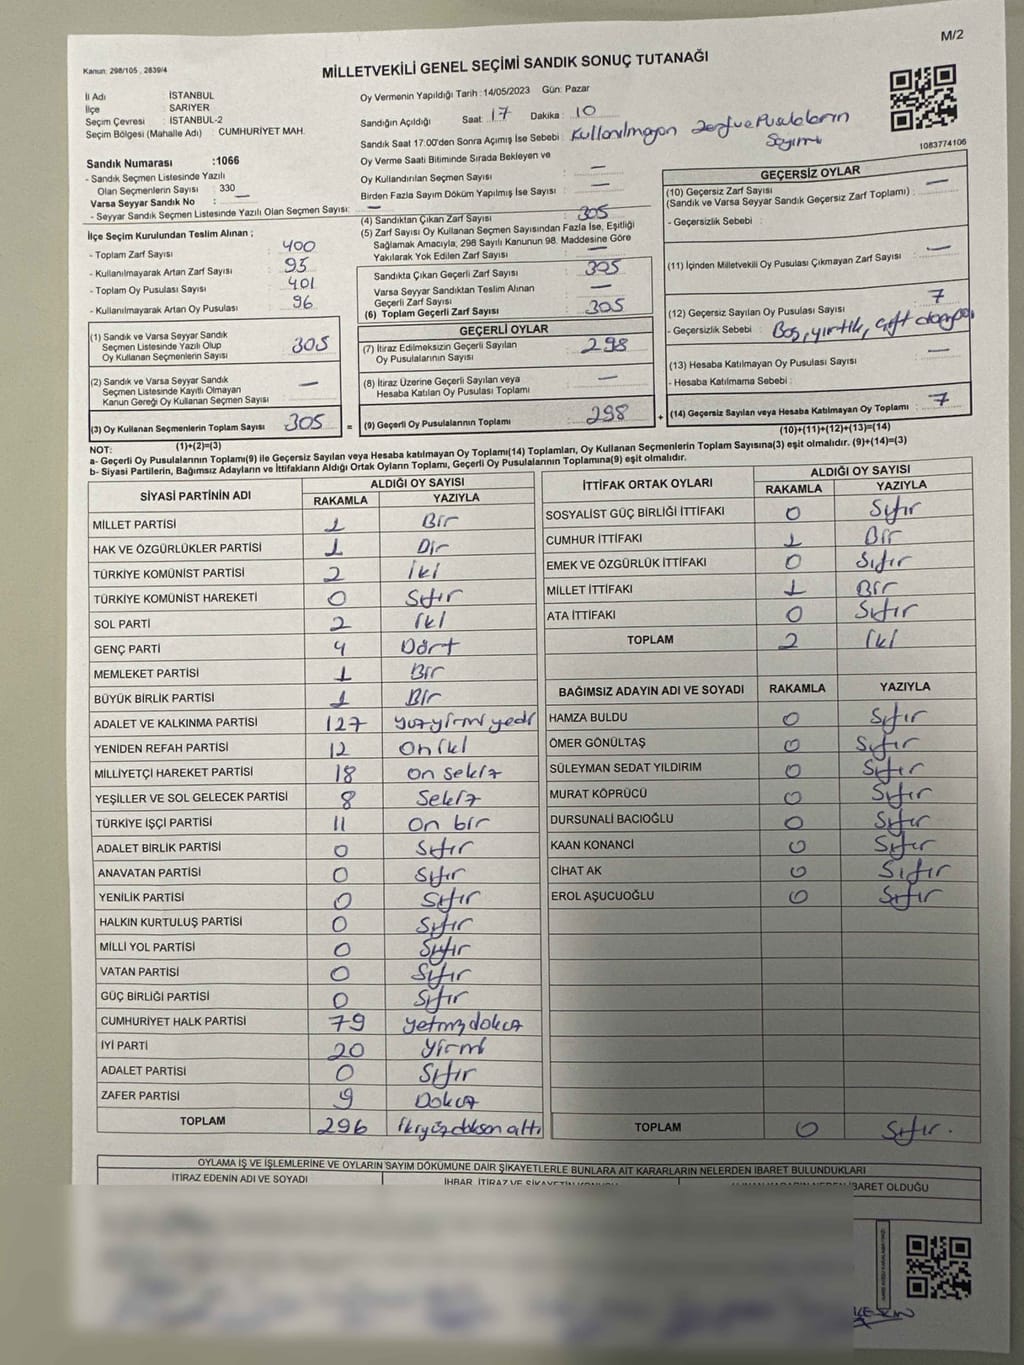 M/2
Kanun: 298/105 , 2839/4
MİLLETVEKİLİ GENEL SEÇİMİ SANDIK SONUÇ TUTANAĞI
İl Adı : İSTANBUL
İlçe : SARIYER
Seçim Çevresi : İSTANBUL-2
Seçim Bölgesi (Mahalle Adı) : CUMHURİYET MAH.
Oy Vermenin Yapıldığı Tarih :14/05/2023 Gün: Pazar
Sandığın Açıldığı Saat : 17 Dakika : 10
Sandık Saat 17:00'den Sonra Açımış İse Sebebi : Kullanılmayan zarf ve Pusulaların Sayımı
1083774106
Sandık Numarası :1066
- Sandık Seçmen Listesinde Yazılı
Olan Seçmenlerin Sayısı : 330
Varsa Seyyar Sandık No : —
- Seyyar Sandık Seçmen Listesinde Yazılı Olan Seçmen Sayısı: —
İlçe Seçim Kurulundan Teslim Alınan ;
- Toplam Zarf Sayısı : 400
- Kullanılmayarak Artan Zarf Sayısı : 95
- Toplam Oy Pusulası Sayısı : 401
- Kullanılmayarak Artan Oy Pusulası : 96
(1) Sandık ve Varsa Seyyar Sandık
Seçmen Listesinde Yazılı Olup
Oy Kullanan Seçmenlerin Sayısı : 305
(2) Sandık ve Varsa Seyyar Sandık
Seçmen Listesinde Kayıtlı Olmayan
Kanun Gereği Oy Kullanan Seçmen Sayısı : —
(3) Oy Kullanan Seçmenlerin Toplam Sayısı : 305
(1)+(2)=(3)
Oy Verme Saati Bitiminde Sırada Bekleyen ve
Oy Kullandırılan Seçmen Sayısı : —
Birden Fazla Sayım Döküm Yapılmış İse Sayısı : —
(4) Sandıktan Çıkan Zarf Sayısı : 305
(5) Zarf Sayısı Oy Kullanan Seçmen Sayısından Fazla İse, Eşitliği
Sağlamak Amacıyla, 298 Sayılı Kanunun 98. Maddesine Göre
Yakılarak Yok Edilen Zarf Sayısı : —
Sandıkta Çıkan Geçerli Zarf Sayısı : 305
Varsa Seyyar Sandıktan Teslim Alınan
Geçerli Zarf Sayısı : —
(6) Toplam Geçerli Zarf Sayısı : 305
GEÇERLİ OYLAR
(7) İtiraz Edilmeksizin Geçerli Sayılan
Oy Pusulalarının Sayısı : 298
(8) İtiraz Üzerine Geçerli Sayılan veya
Hesaba Katılan Oy Pusulası Toplamı : —
= (9) Geçerli Oy Pusulalarının Toplamı : 298
GEÇERSİZ OYLAR
(10) Geçersiz Zarf Sayısı
(Sandık ve Varsa Seyyar Sandık Geçersiz Zarf Toplamı) : —
- Geçersizlik Sebebi :
(11) İçinden Milletvekili Oy Pusulası Çıkmayan Zarf Sayısı : —
(12) Geçersiz Sayılan Oy Pusulası Sayısı : 7
- Geçersizlik Sebebi : Boş, yırtık, çift
(13) Hesaba Katılmayan Oy Pusulası Sayısı : —
- Hesaba Katılmama Sebebi :
+ (14) Geçersiz Sayılan veya Hesaba Katılmayan Oy Toplamı : 7
(10)+(11)+(12)+(13)=(14)
NOT:
a- Geçerli Oy Pusulaların Toplamı(9) ile Geçersiz Sayılan veya Hesaba katılmayan Oy Toplamı(14) Toplamları, Oy Kullanan Seçmenlerin Toplam Sayısına(3) eşit olmalıdır. (9)+(14)=(3)
b- Siyasi Partilerin, Bağımsız Adayların ve İttifakların Aldığı Ortak Oyların Toplamı, Geçerli Oy Pusulalarının Toplamına(9) eşit olmalıdır.
SİYASİ PARTİNİN ADI
ALDIĞI OY SAYISI
RAKAMLA YAZIYLA
MİLLET PARTİSİ 1 Bir
HAK VE ÖZGÜRLÜKLER PARTİSİ 1 Bir
TÜRKİYE KOMÜNİST PARTİSİ 2 iki
TÜRKİYE KOMÜNİST HAREKETİ 0 Sıfır
SOL PARTİ 2 iki
GENÇ PARTİ 4 Dört
MEMLEKET PARTİSİ 1 Bir
BÜYÜK BİRLİK PARTİSİ 1 Bir
ADALET VE KALKINMA PARTİSİ 127 yüzyirmi yedi
YENİDEN REFAH PARTİSİ 12 on iki
MİLLİYETÇİ HAREKET PARTİSİ 18 on sekiz
YEŞİLLER VE SOL GELECEK PARTİSİ 8 Sekiz
TÜRKİYE İŞÇİ PARTİSİ 11 on bir
ADALET BİRLİK PARTİSİ 0 Sıfır
ANAVATAN PARTİSİ 0 Sıfır
YENİLİK PARTİSİ 0 Sıfır
HALKIN KURTULUŞ PARTİSİ 0 Sıfır
MİLLİ YOL PARTİSİ 0 Sıfır
VATAN PARTİSİ 0 Sıfır
GÜÇ BİRLİĞİ PARTİSİ 0 Sıfır
CUMHURİYET HALK PARTİSİ 79 yetmişdokuz
İYİ PARTİ 20 yirmi
ADALET PARTİSİ 0 Sıfır
ZAFER PARTİSİ 9 Dokuz
TOPLAM 296 ikiyüzdoksan altı
İTTİFAK ORTAK OYLARI
ALDIĞI OY SAYISI
RAKAMLA YAZIYLA
SOSYALİST GÜÇ BİRLİĞİ İTTİFAKI 0 Sıfır
CUMHUR İTTİFAKI 1 Bir
EMEK VE ÖZGÜRLÜK İTTİFAKI 0 Sıfır
MİLLET İTTİFAKI 1 Bir
ATA İTTİFAKI 0 Sıfır
TOPLAM 2 iki
BAĞIMSIZ ADAYIN ADI VE SOYADI RAKAMLA YAZIYLA
HAMZA BULDU 0 Sıfır
ÖMER GÖNÜLTAŞ 0 Sıfır
SÜLEYMAN SEDAT YILDIRIM 0 Sıfır
MURAT KÖPRÜCÜ 0 Sıfır
DURSUNALİ BACIOĞLU 0 Sıfır
KAAN KONANCİ 0 Sıfır
CİHAT AK 0 Sıfır
EROL AŞUCUOĞLU 0 Sıfır
TOPLAM 0 Sıfır.
OYLAMA İŞ VE İŞLEMLERİNE VE OYLARIN SAYIM DÖKÜMÜNE DAİR ŞİKAYETLERLE BUNLARA AİT KARARLARIN NELERDEN İBARET BULUNDUKLARI
İTİRAZ EDENİN ADI VE SOYADI
İHBAR, İTİRAZ VE ŞİKAYETİN KONUSU
İBARET OLDUĞU